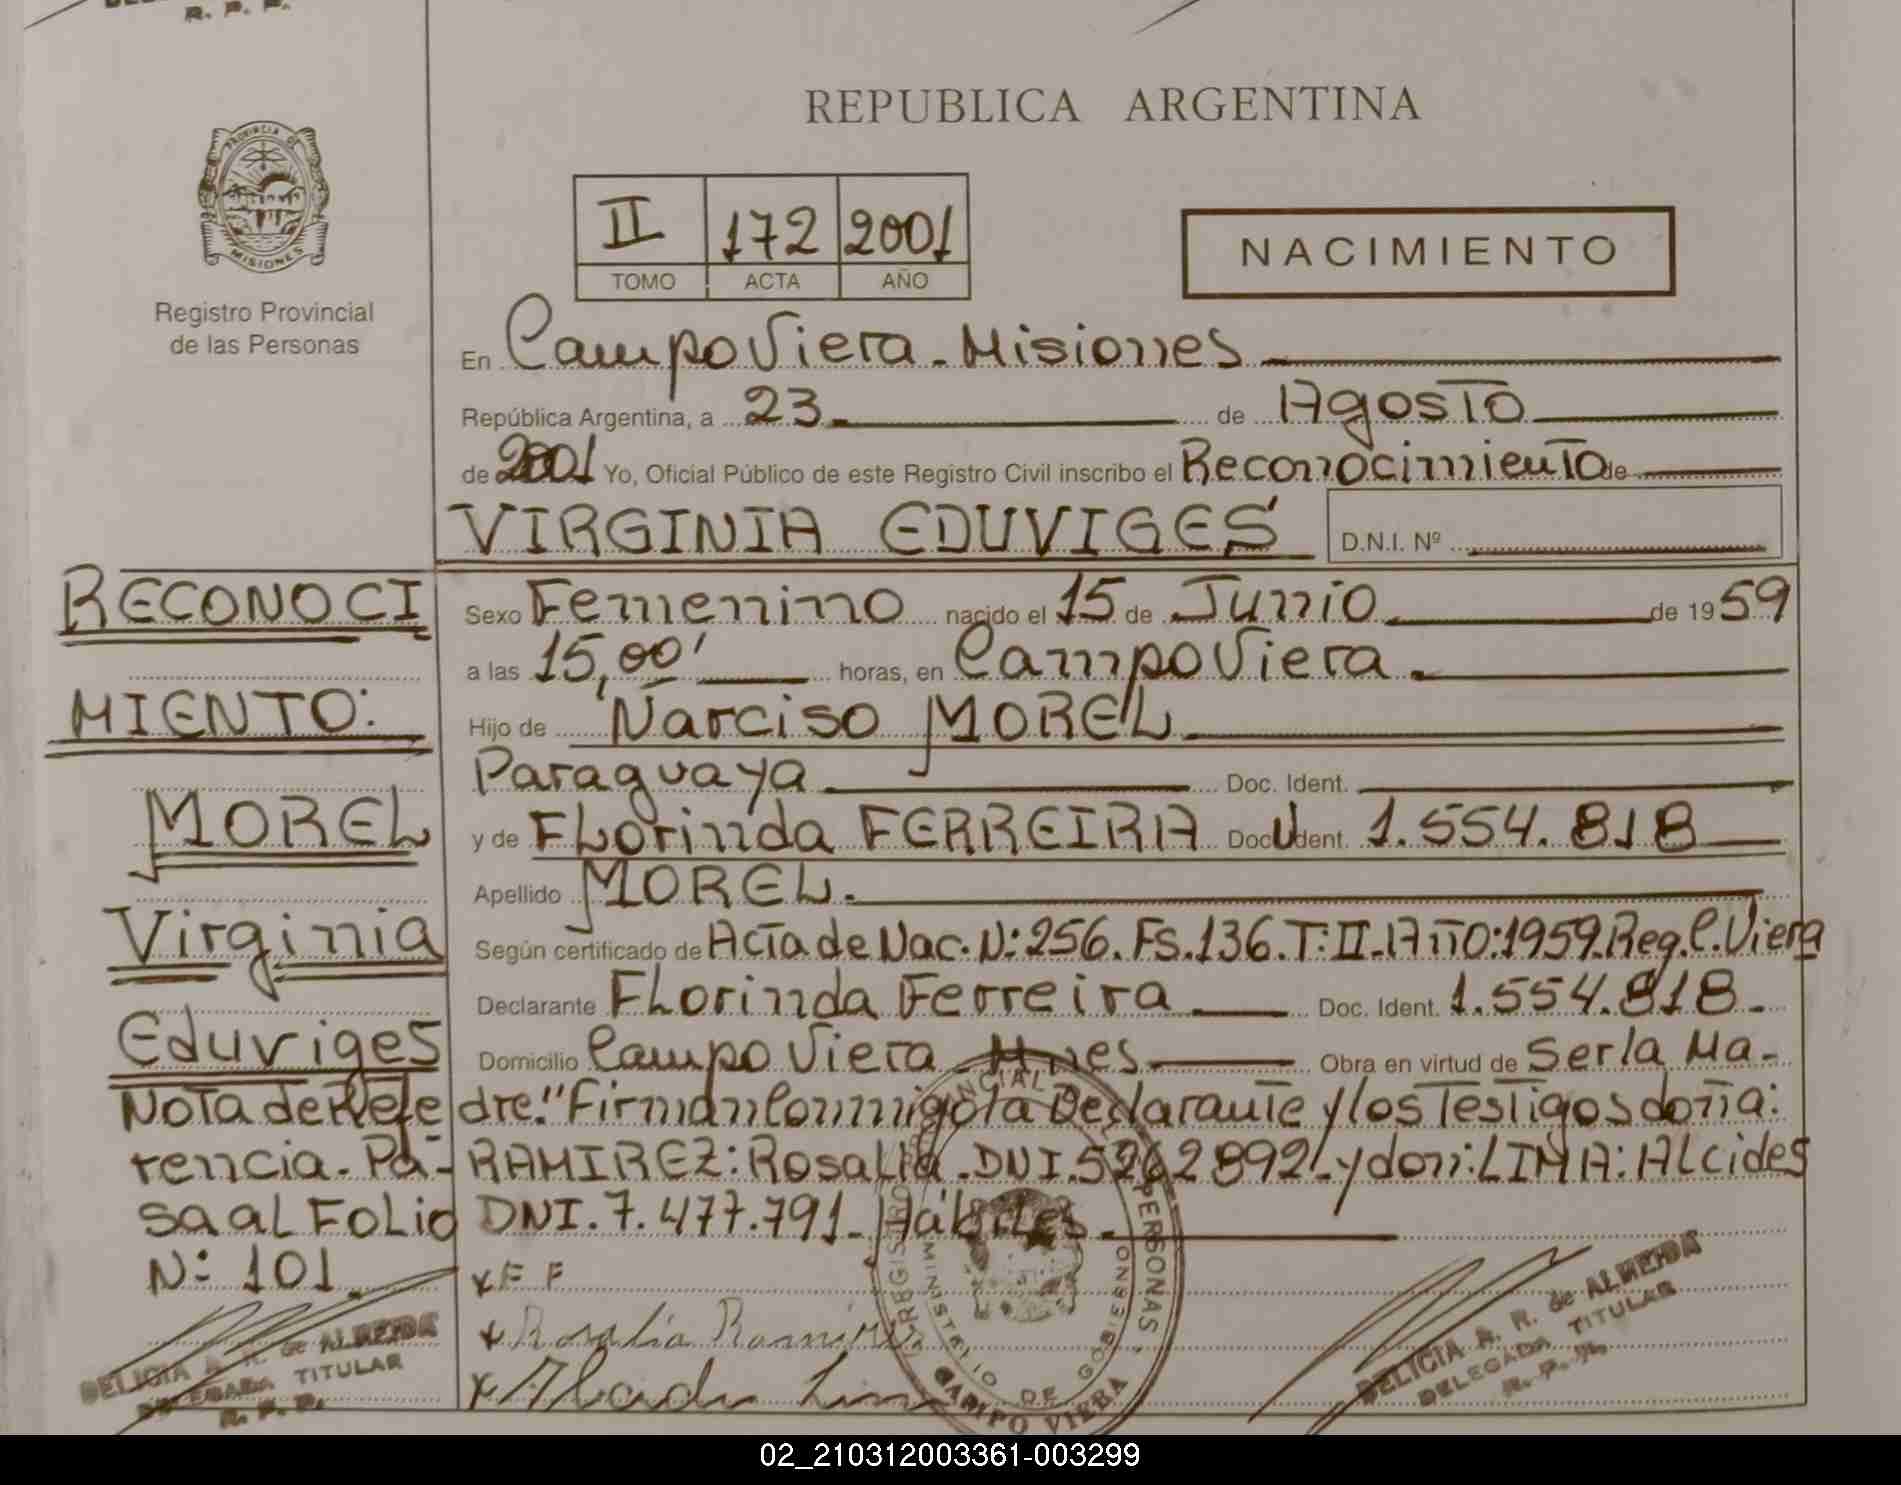 R. P. P.
REPUBLICA ARGENTINA
PROVINCIA DE MISIONES
Registro Provincial
de las Personas
II 172 2001
TOMO ACTA AÑO
NACIMIENTO
En Campo Viera - Misiones
República Argentina, a 23 de Agosto
de 2001 Yo, Oficial Público de este Registro Civil inscribo el Reconocimiento de
VIRGINIA EDUVIGES D.N.I. Nº
Sexo Femenino nacido el 15 de Junio de 1959
a las 15,00' horas, en Campo Viera
Hijo de Narciso MOREL
Paraguaya Doc. Ident.
y de Florinda FERREIRA Doc. Ident. 1.554.818
Apellido MOREL.
Según certificado de Acta de Nac. N: 256. Fs. 136. T: II - Año: 1959. Reg. C. Viera
Declarante Florinda Ferreira Doc. Ident. 1.554.818.
Domicilio Campo Viera - Mnes Obra en virtud de Ser la Ma-
dre." Firman Conmigo la Declarante y los Testigos doña:
RAMIREZ: Rosalia. DNI. 5262892 - y don: LIMA: Alcides
DNI. 7.477.791 - Hábiles
x F F
x Rosalia Ramirez
x Alcides Lima
RECONOCI
MIENTO:
MOREL
Virginia
Eduviges
Nota de Refe
rencia - Pa-
sa al Folio
N: 101
DELICIA A. R. de ALMEIDA
DELEGADA TITULAR
R. P. P.
REGISTRO PROVINCIAL PERSONAS
MINISTERIO DE GOBIERNO
CAMPO VIERA
DELICIA A. R. de ALMEIDA
DELEGADA TITULAR
R. P. P.
02_210312003361-003299